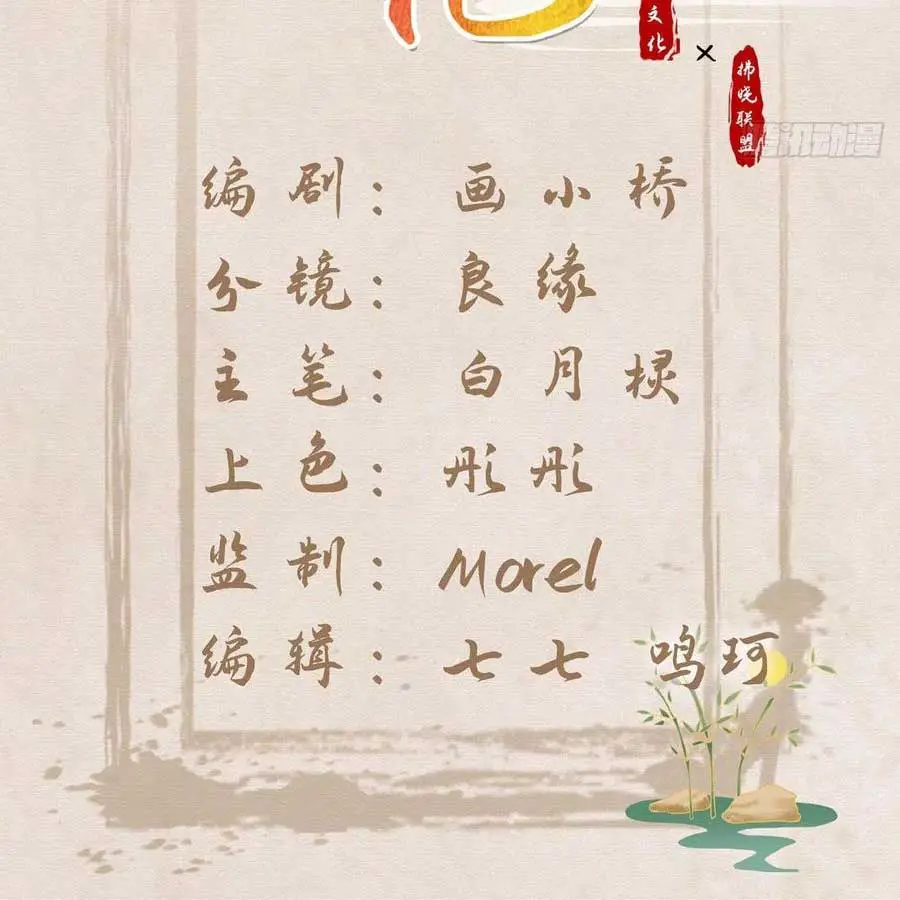 文化
×
拂晓联盟
腾讯动漫
编剧：画小桥
分镜：良缘
主笔：白月棂
上色：彤彤
监制：Morel
编辑：七七 鸣珂